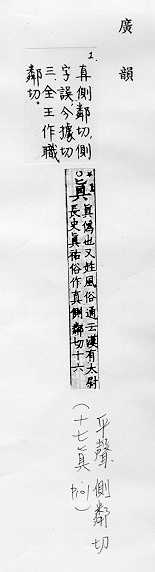 廣韻
1.
真側鄰切,側
字誤,今據切
三、全王作職
鄰切。
眞眞僞也又姓風俗通云漢有太尉
長史眞祐俗作真側鄰切十六
平聲側鄰切
(十七真